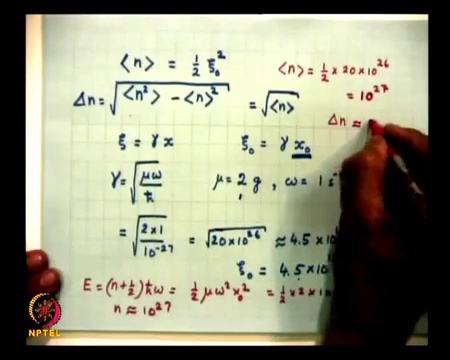 <n> = 1/2 ξ₀²
<n> = 1/2 × 20 × 10²⁶
= 10²⁷
Δn = √(<n²> − <n>²) = √<n>
Δn ≈
ξ = γ x
ξ₀ = γ x₀
γ = √(μω/ħ)
μ = 2 g , ω = 1 s
= √(2×1/10⁻²⁷) = √(20×10²⁶) ≈ 4.5 × 10
ξ₀ = 4.5 × 10
E = (n+½)ħω = ½ μω²x₀² = ½ × 2 × 10
n ≈ 10²⁷
NPTEL